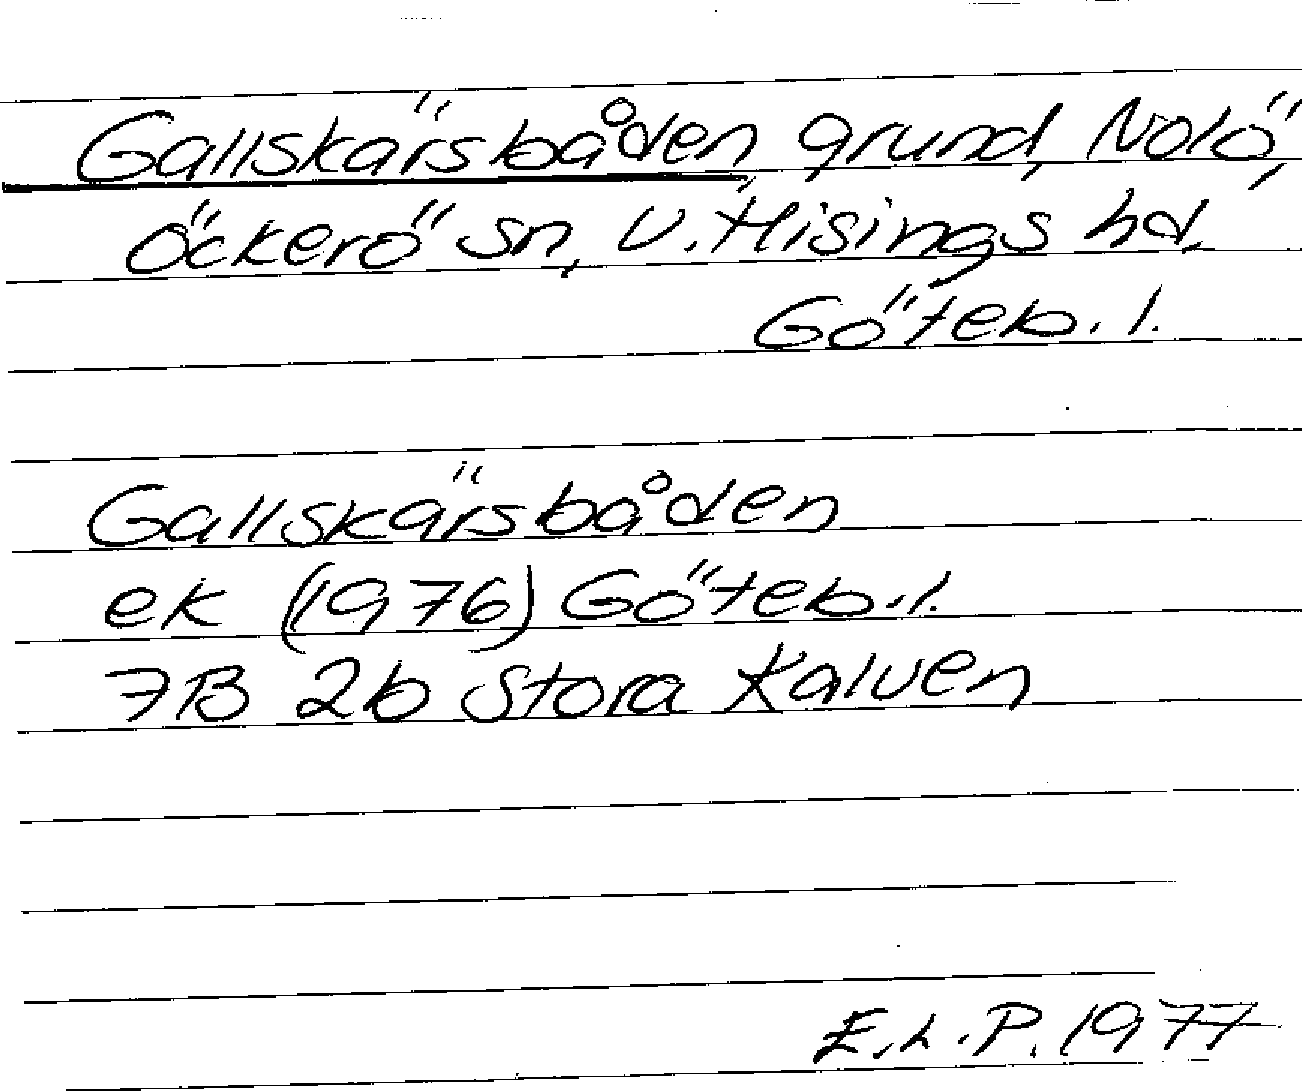 Gallskärsbåden, grund, Nolö,
Öckerö sn, V. Hisings hd,
Göteb. l.
Gallskärsbåden
ek (1976) Göteb. l.
7B 2b Stora Kalven
E.L.P. 1977